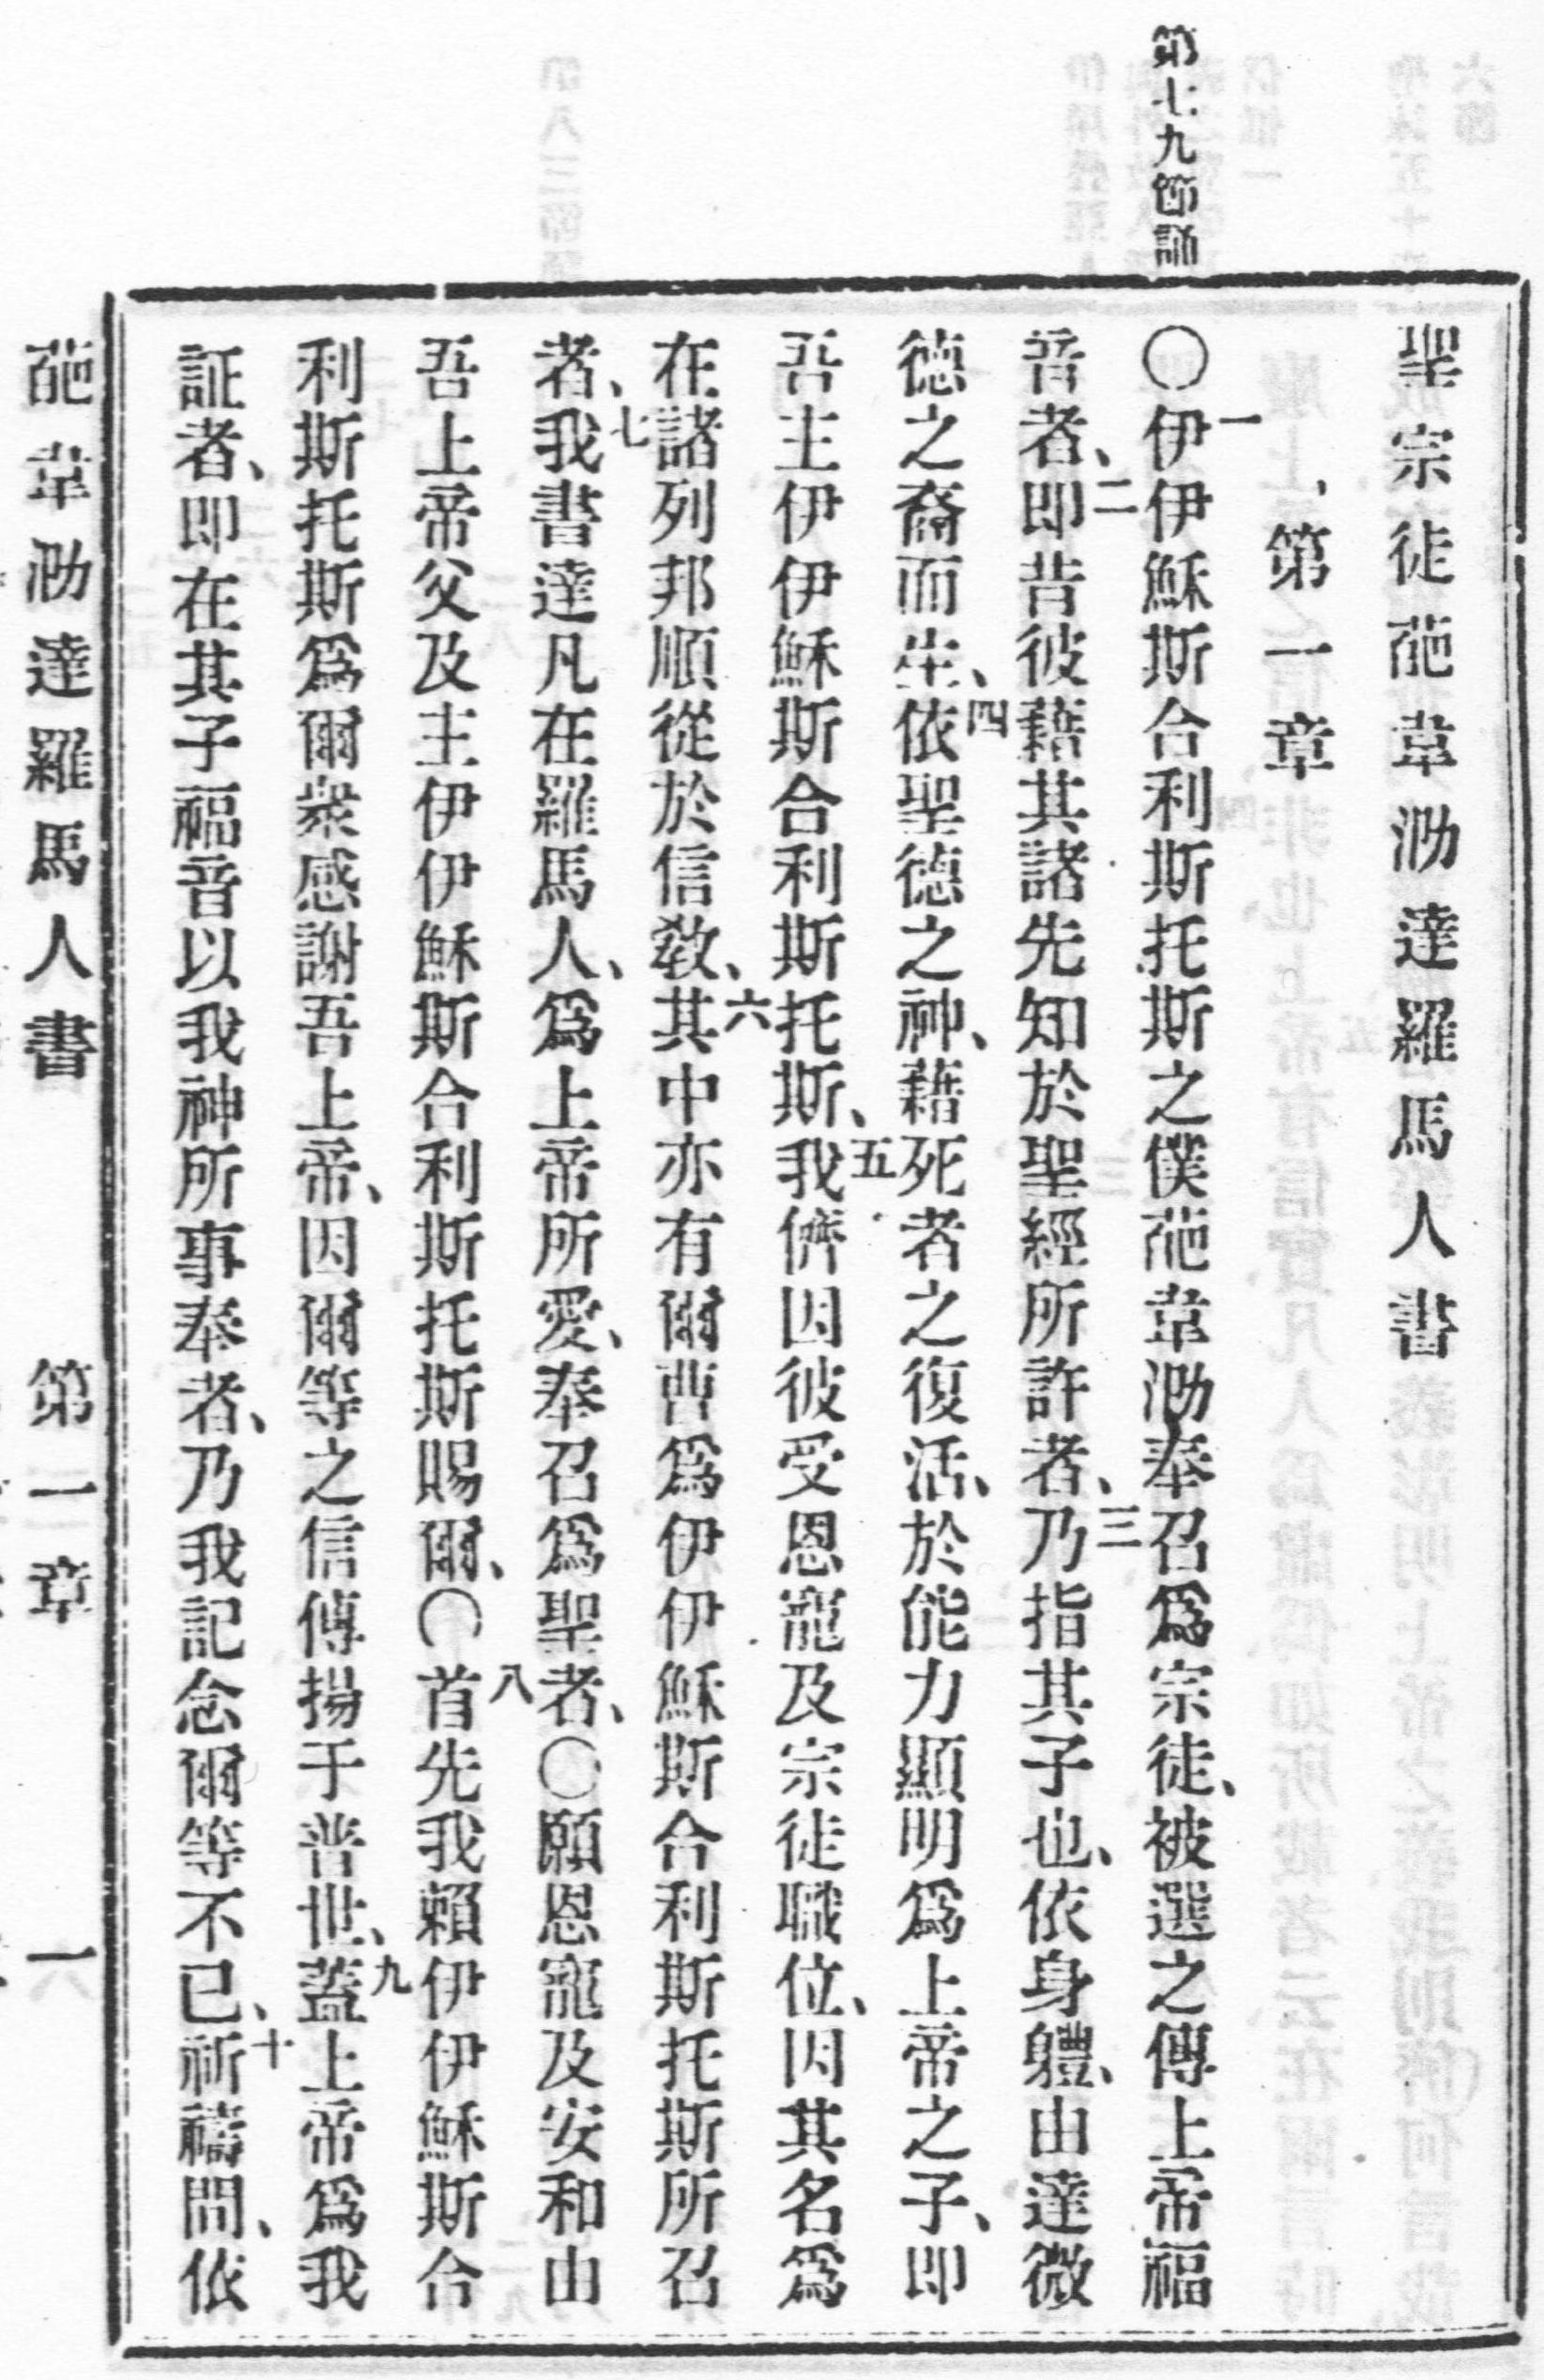 第七九節誦
聖宗徒葩韋泐達羅馬人書
第一章
〇一伊伊穌斯合利斯托斯之僕葩韋泐奉召爲宗徒、被選之傳上帝福
音者、二即昔彼藉其諸先知於聖經所許者、三乃指其子也、依身軆、由達微
德之裔而生、四依聖德之神、藉死者之復活、於能力顯明爲上帝之子、即
吾主伊伊穌斯合利斯托斯、五我儕因彼受恩寵及宗徒職位、因其名爲
在諸列邦順從於信教、六其中亦有爾曹爲伊伊穌斯合利斯托斯所召
者、七我書達凡在羅馬人、爲上帝所愛、奉召爲聖者、〇願恩寵及安和由
吾上帝父及主伊伊穌斯合利斯托斯賜爾、〇八首先我賴伊伊穌斯合
利斯托斯爲爾衆感謝吾上帝、因爾等之信傳揚于普世、九蓋上帝爲我
証者、即在其子福音以我神所事奉者、乃我記念爾等不已、十祈禱問、依
葩韋泐達羅馬人書 第一章 一